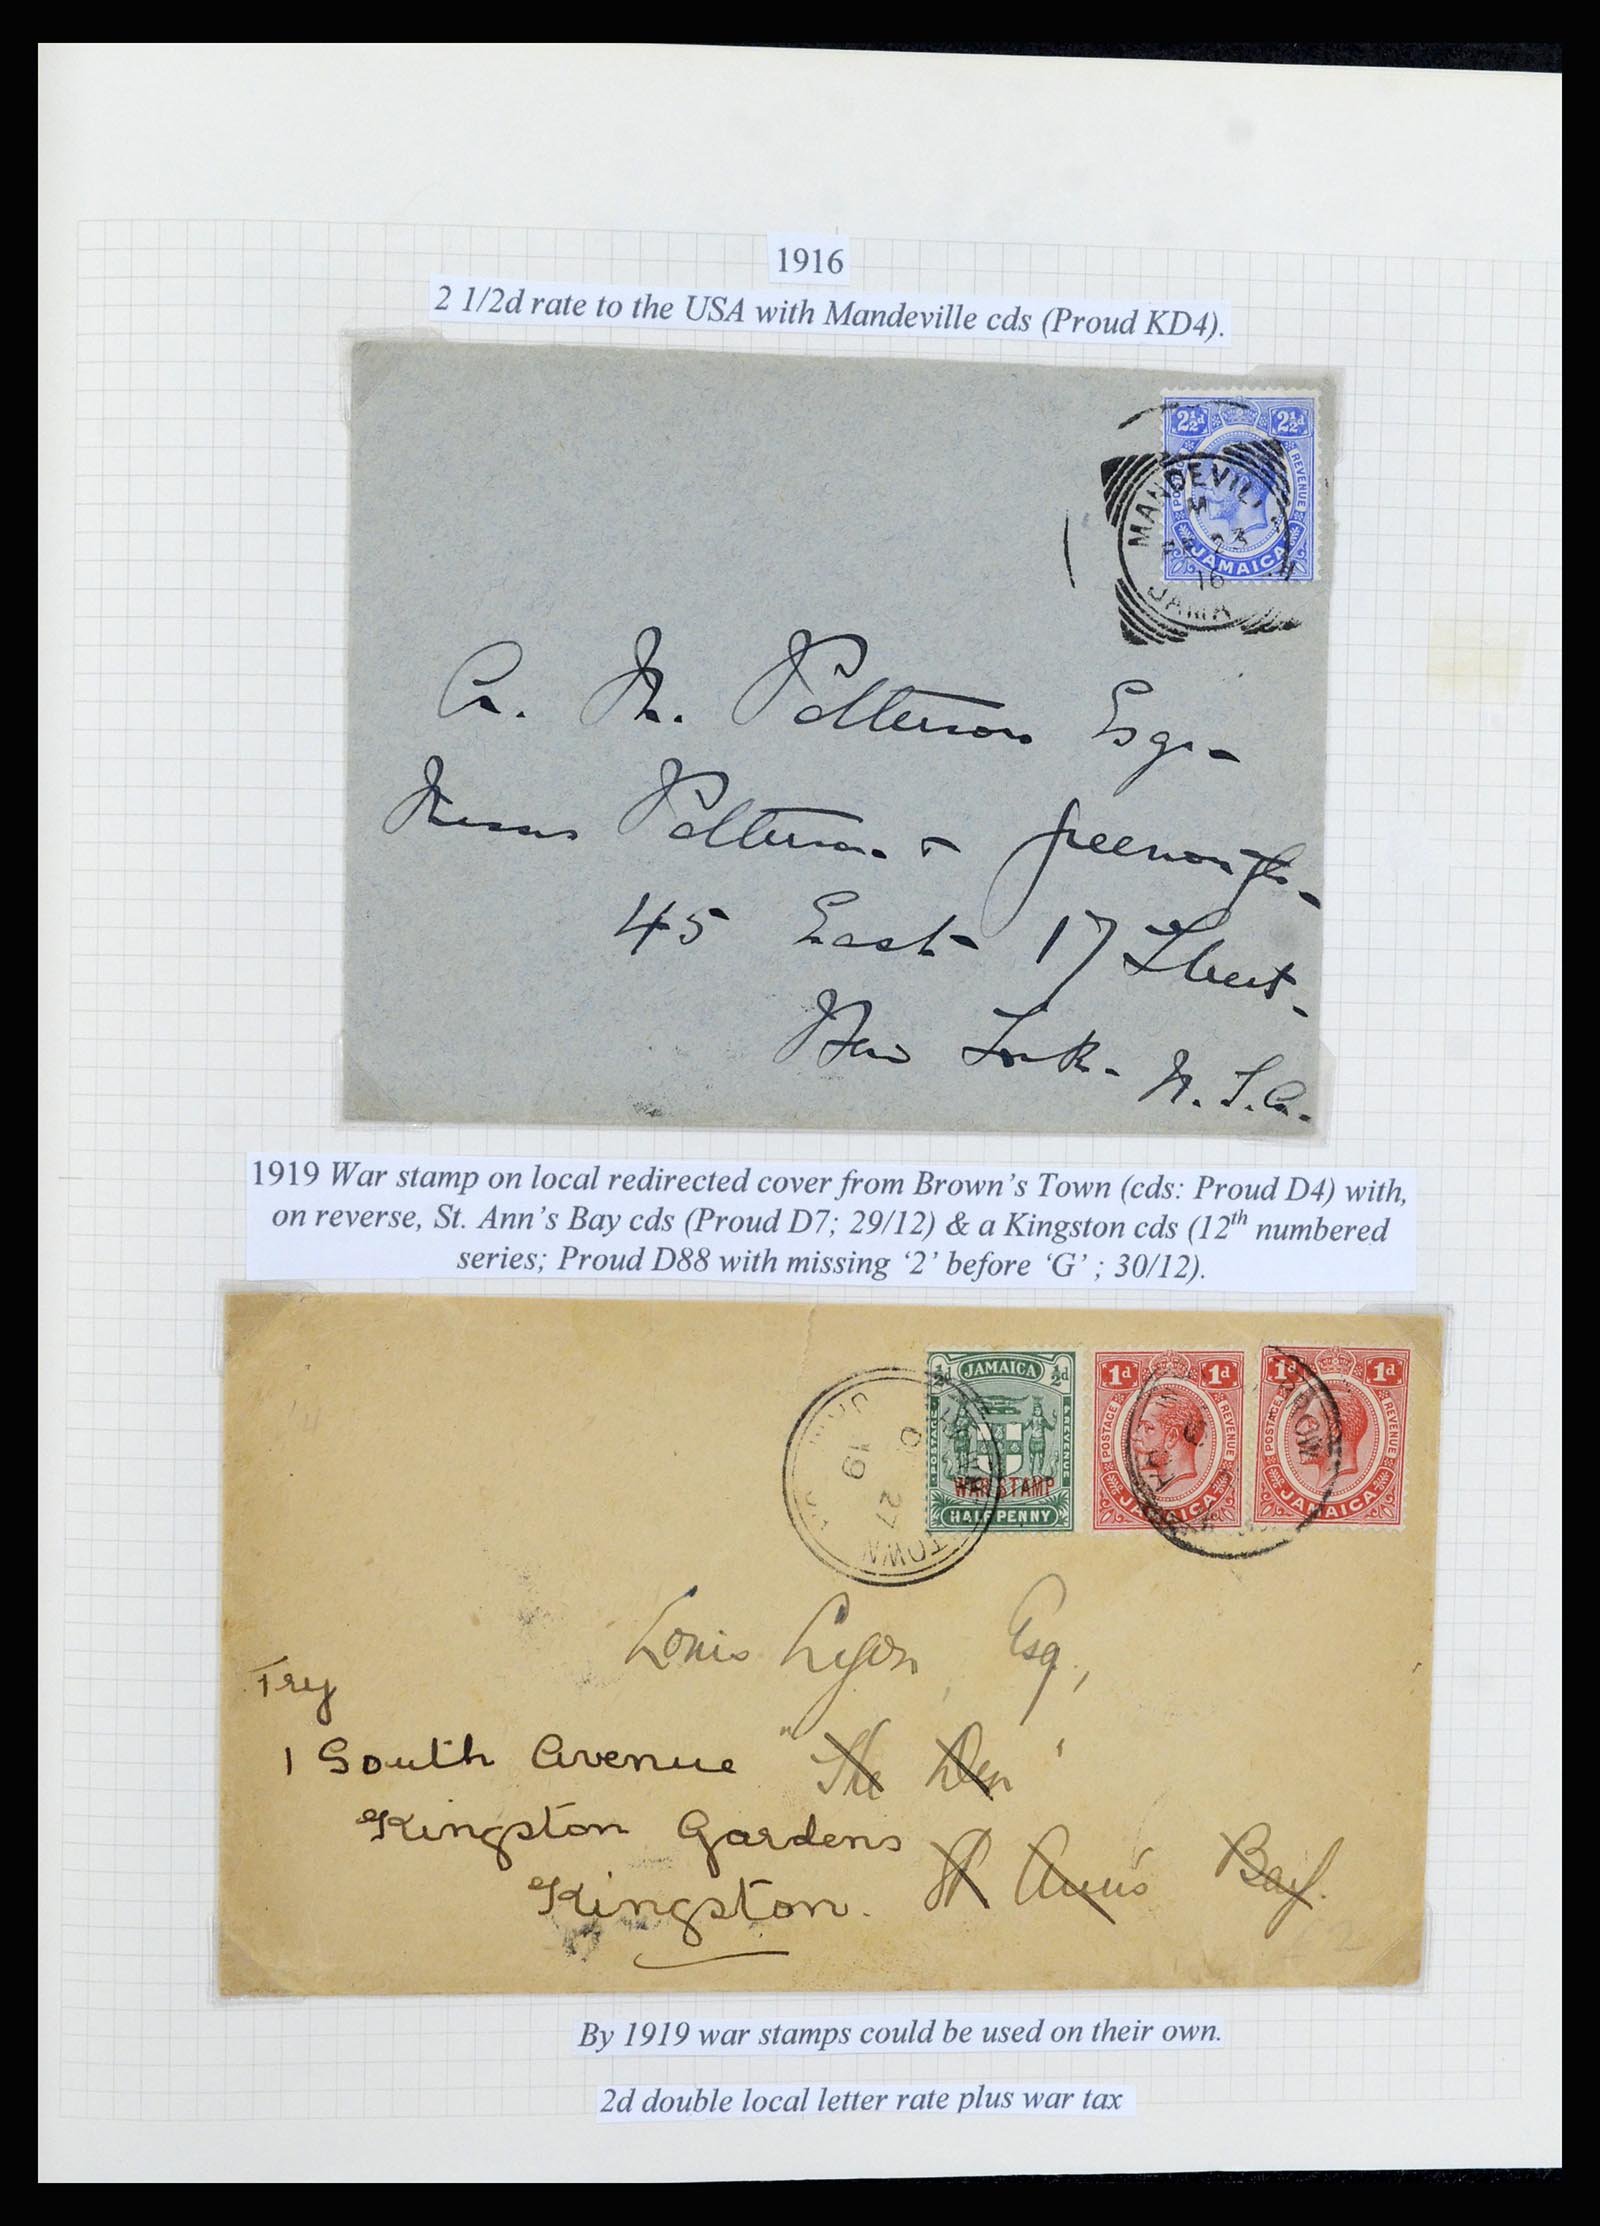 1916
2 1/2d rate to the USA with Mandeville cds (Proud KD4).
2½d 2½d
REVENUE
JAMAICA
MANDEVIL
M
23
16
JAMA
A. M. Patterson Esq.
Messrs Patterson &
45 East 17 Street.
New York. U.S.A.
1919 War stamp on local redirected cover from Brown's Town (cds: Proud D4) with,
on reverse, St. Ann's Bay cds (Proud D7; 29/12) & a Kingston cds (12th numbered
series; Proud D88 with missing '2' before 'G' ; 30/12).
½d JAMAICA ½d
POSTAGE & REVENUE
WAR STAMP
HALFPENNY
1d 1d
POSTAGE REVENUE
JAMAICA
1d 1d
POSTAGE REVENUE
JAMAICA
19
27
TOWN
BROW
Louis Lyon Esq,
Try
1 South Avenue "The Den"
Kingston Gardens
St Ann's Bay.
Kingston.
By 1919 war stamps could be used on their own.
2d double local letter rate plus war tax